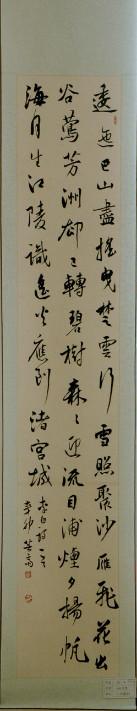 逶迤巴山盡搖曳楚雲行雪照聚沙雁飛花出
谷鶯芳洲却已轉碧樹森森迎流目浦煙夕揚帆
海月生江陵識遙火應到渚宮城
李白詩一首
辛卯